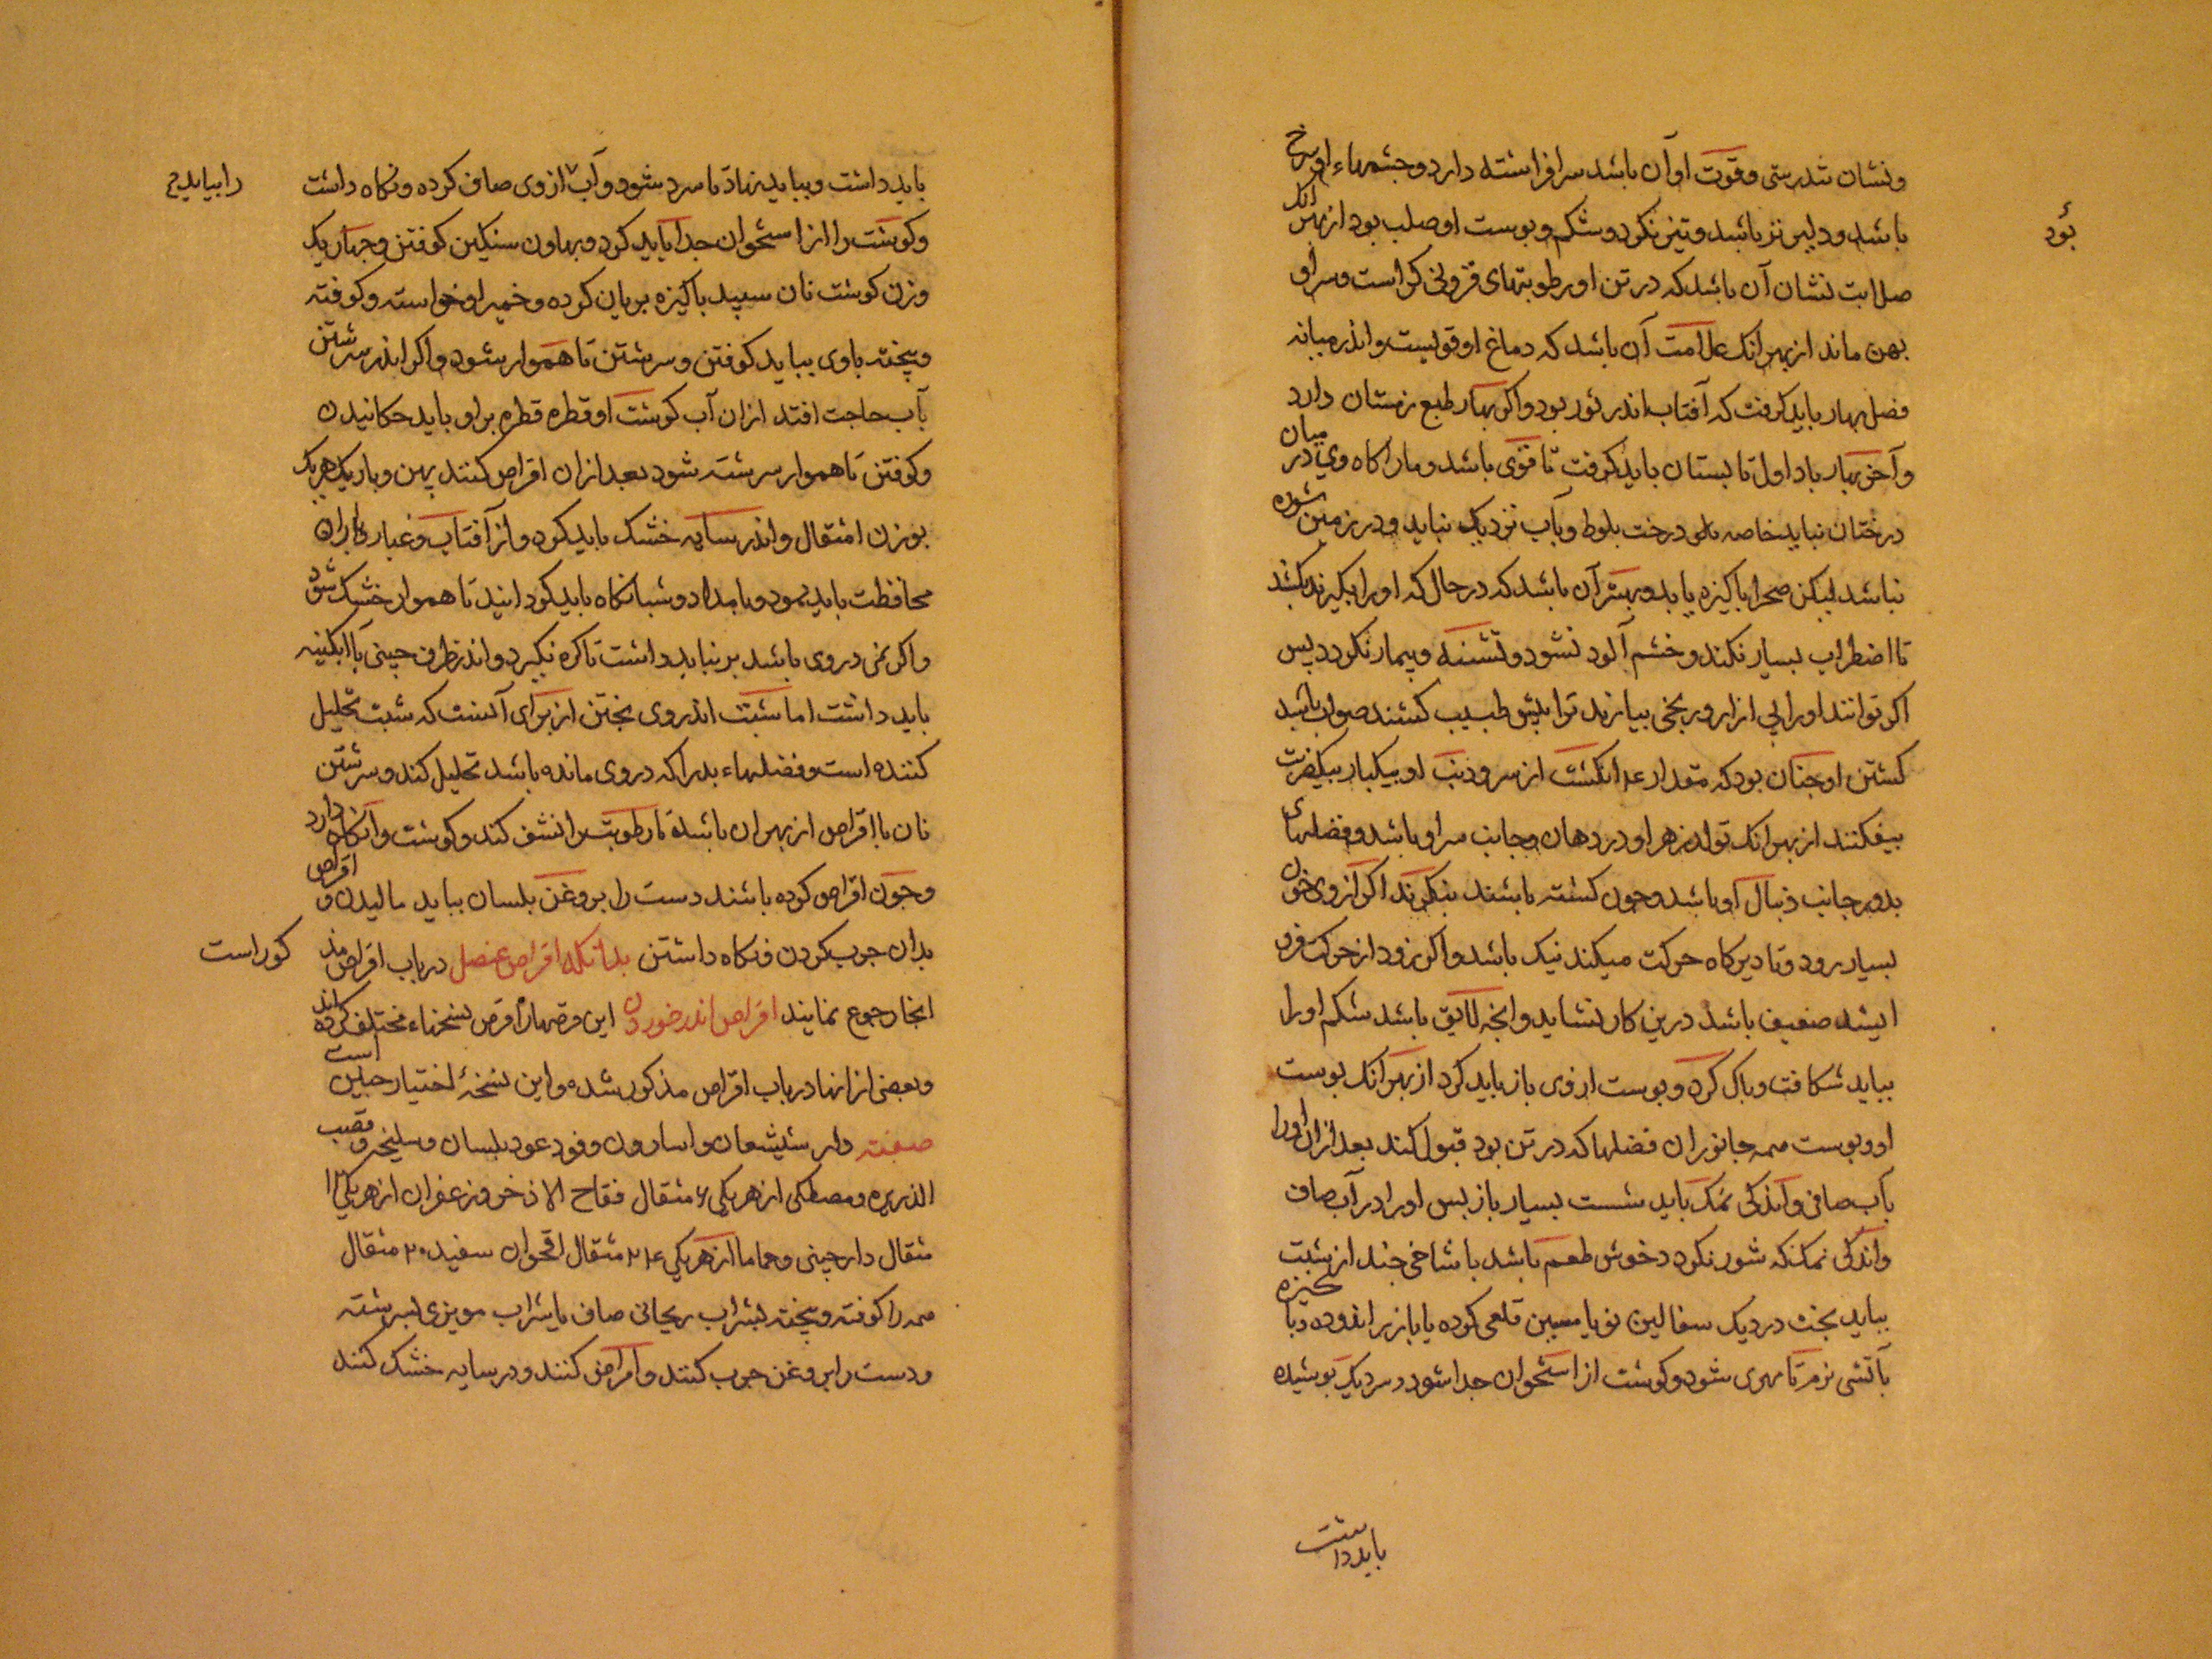 ونشان تندرستی وقوت او آن باشد سر افراشته دارد وچشمهاء او سرخ
باشد ودلیر تر باشد وتیز نکرد وشکم وپوست او صلب بود از بهر آنک
صلابت نشان آن باشد که در تن او رطوبتهای فزونی کم است وسر او
پهن ماند از بهر آنک علامت آن باشد که دماغ او قویست واندر میانه
فصل بهار باید کرفت که آفتاب اندر ثور بود واکر بهار طبع زمستان دارد
وآخر بهار یا در اول تابستان باید کرفت تا قوی باشد وماراکاه وی در میان
درختان نباید خاصه درخت بلوط وبآب نزدیک نباید ودر زمین شوره
نباشد لیکن صحرا پاکیزه باید وبهتر آن باشد که در حال که او را بکیرند بکشند
تا اضطراب بسیار نکند وخشم آلود نشود وتشنه وبیمار نکردد پس
اکر توانند او را بی آزار ورنجی بیارند تا پیش طبیب کشند صواب باشد
کشتن او چنان بود که مقدار ٤ انکشت از سر ودنب او بیکبار بیک ضربت
بیفکنند از بهر آنک تولد زهر او در دهان وجانب سر او باشد وفضلهای
بد در جانب دنبال او باشد وچون کشته باشند بنکرند اکر از وی خون
بسیار رود وتا دیرکاه حرکت میکند نیک باشد واکر زود از حرکت فرو
ایستد ضعیف باشد درین کار نشاید وآنچه لایق باشد شکم او را
بباید شکافت وپاک کرد وپوست از وی باز باید کرد از بهر آنک پوست
او وپوست همه جانوران فضلها که در تن بود قبول کند بعد از ان او را
بآب صافی واندکی نمک باید شست بسیار باز پس او را در آب صاف
واندکی نمک که شور نکردد خوش طعم باشد با شاخی چند از شبت
بباید پخت در دیک سفالین نو یا مسین قلعی کرده یا بارزیر اندوده
بآتشی نرم تا مهری شود وکوشت از استخوان جدا شود وسر دیک پوشیده
باید داشت
بود
باید داشت وبباید نهاد تا سرد شود وآب از وی صاف کرده ونکاه داشت
وکوشت را از استخوان جدا باید کرد وبهاون سنکین کوفتن وچهار یک
وزن کوشت نان سپید پاکیزه بریان کرده وخمیر او خواسته وکوفته
وبیخته با وی بباید کوفتن وسرشتن تا هموار شود واکر اندر سرشتن
بآب حاجت افتد از ان آب کوشت او قطره قطره بر او باید چکانیدن
وکوفتن تا هموار سرشته شود بعد از ان اقراص کنند پهن وباریک هر یک
بوزن ا مثقال واندر سایه خشک باید کرد واز آفتاب وغبار وباران
محافظت باید نمود وبامداد وشبانکاه باید کردانید تا هموار خشک شود
واکر نمی در وی باشد بر نباید داشت تا کره نکیرد واندر ظرف چینی یا آبکینه
باید داشت اما شبت اندر وی پختن از برای آنست که شبت تحلیل
کننده است وفضلهاء بد را که در وی مانده باشد تحلیل کند وسرشتن
نان با اقراص از بهر ان باشد تا رطوبت را نشف کند وکوشت را نکاه دارد
وچون اقراص کرده باشند دست را بروغن بلسان بباید مالیدن واقراص
بدان چرب کردن ونکاه داشتن بدانکه اقراص عنصل در باب اقراص مذ
انجا رجوع نمایند اقراص اندر خوردن این قرصها را نسختهاء مختلف کرده اند
وبعضی از انها در باب اقراص مذکور شده واین نسخهٔ اختیار حنین است
صفته دار شیشعان واسارون وفوه وعود بلسان وسلیخه وقصب
الذریره ومصطکی از هر یکی ٦ مثقال فقاح الاذخر وزعفران از هر یکی ١٢
مثقال دارچینی وحماما از هر یکی ٢٤ مثقال اقحوان سفید ٢٠ مثقال
همه را کوفته وبیخته بشراب ریحانی صاف یا شراب مویزی بسرشته
ودست را بروغن چرب کنند واقراص کنند ودر سایه خشک کنند
کور است